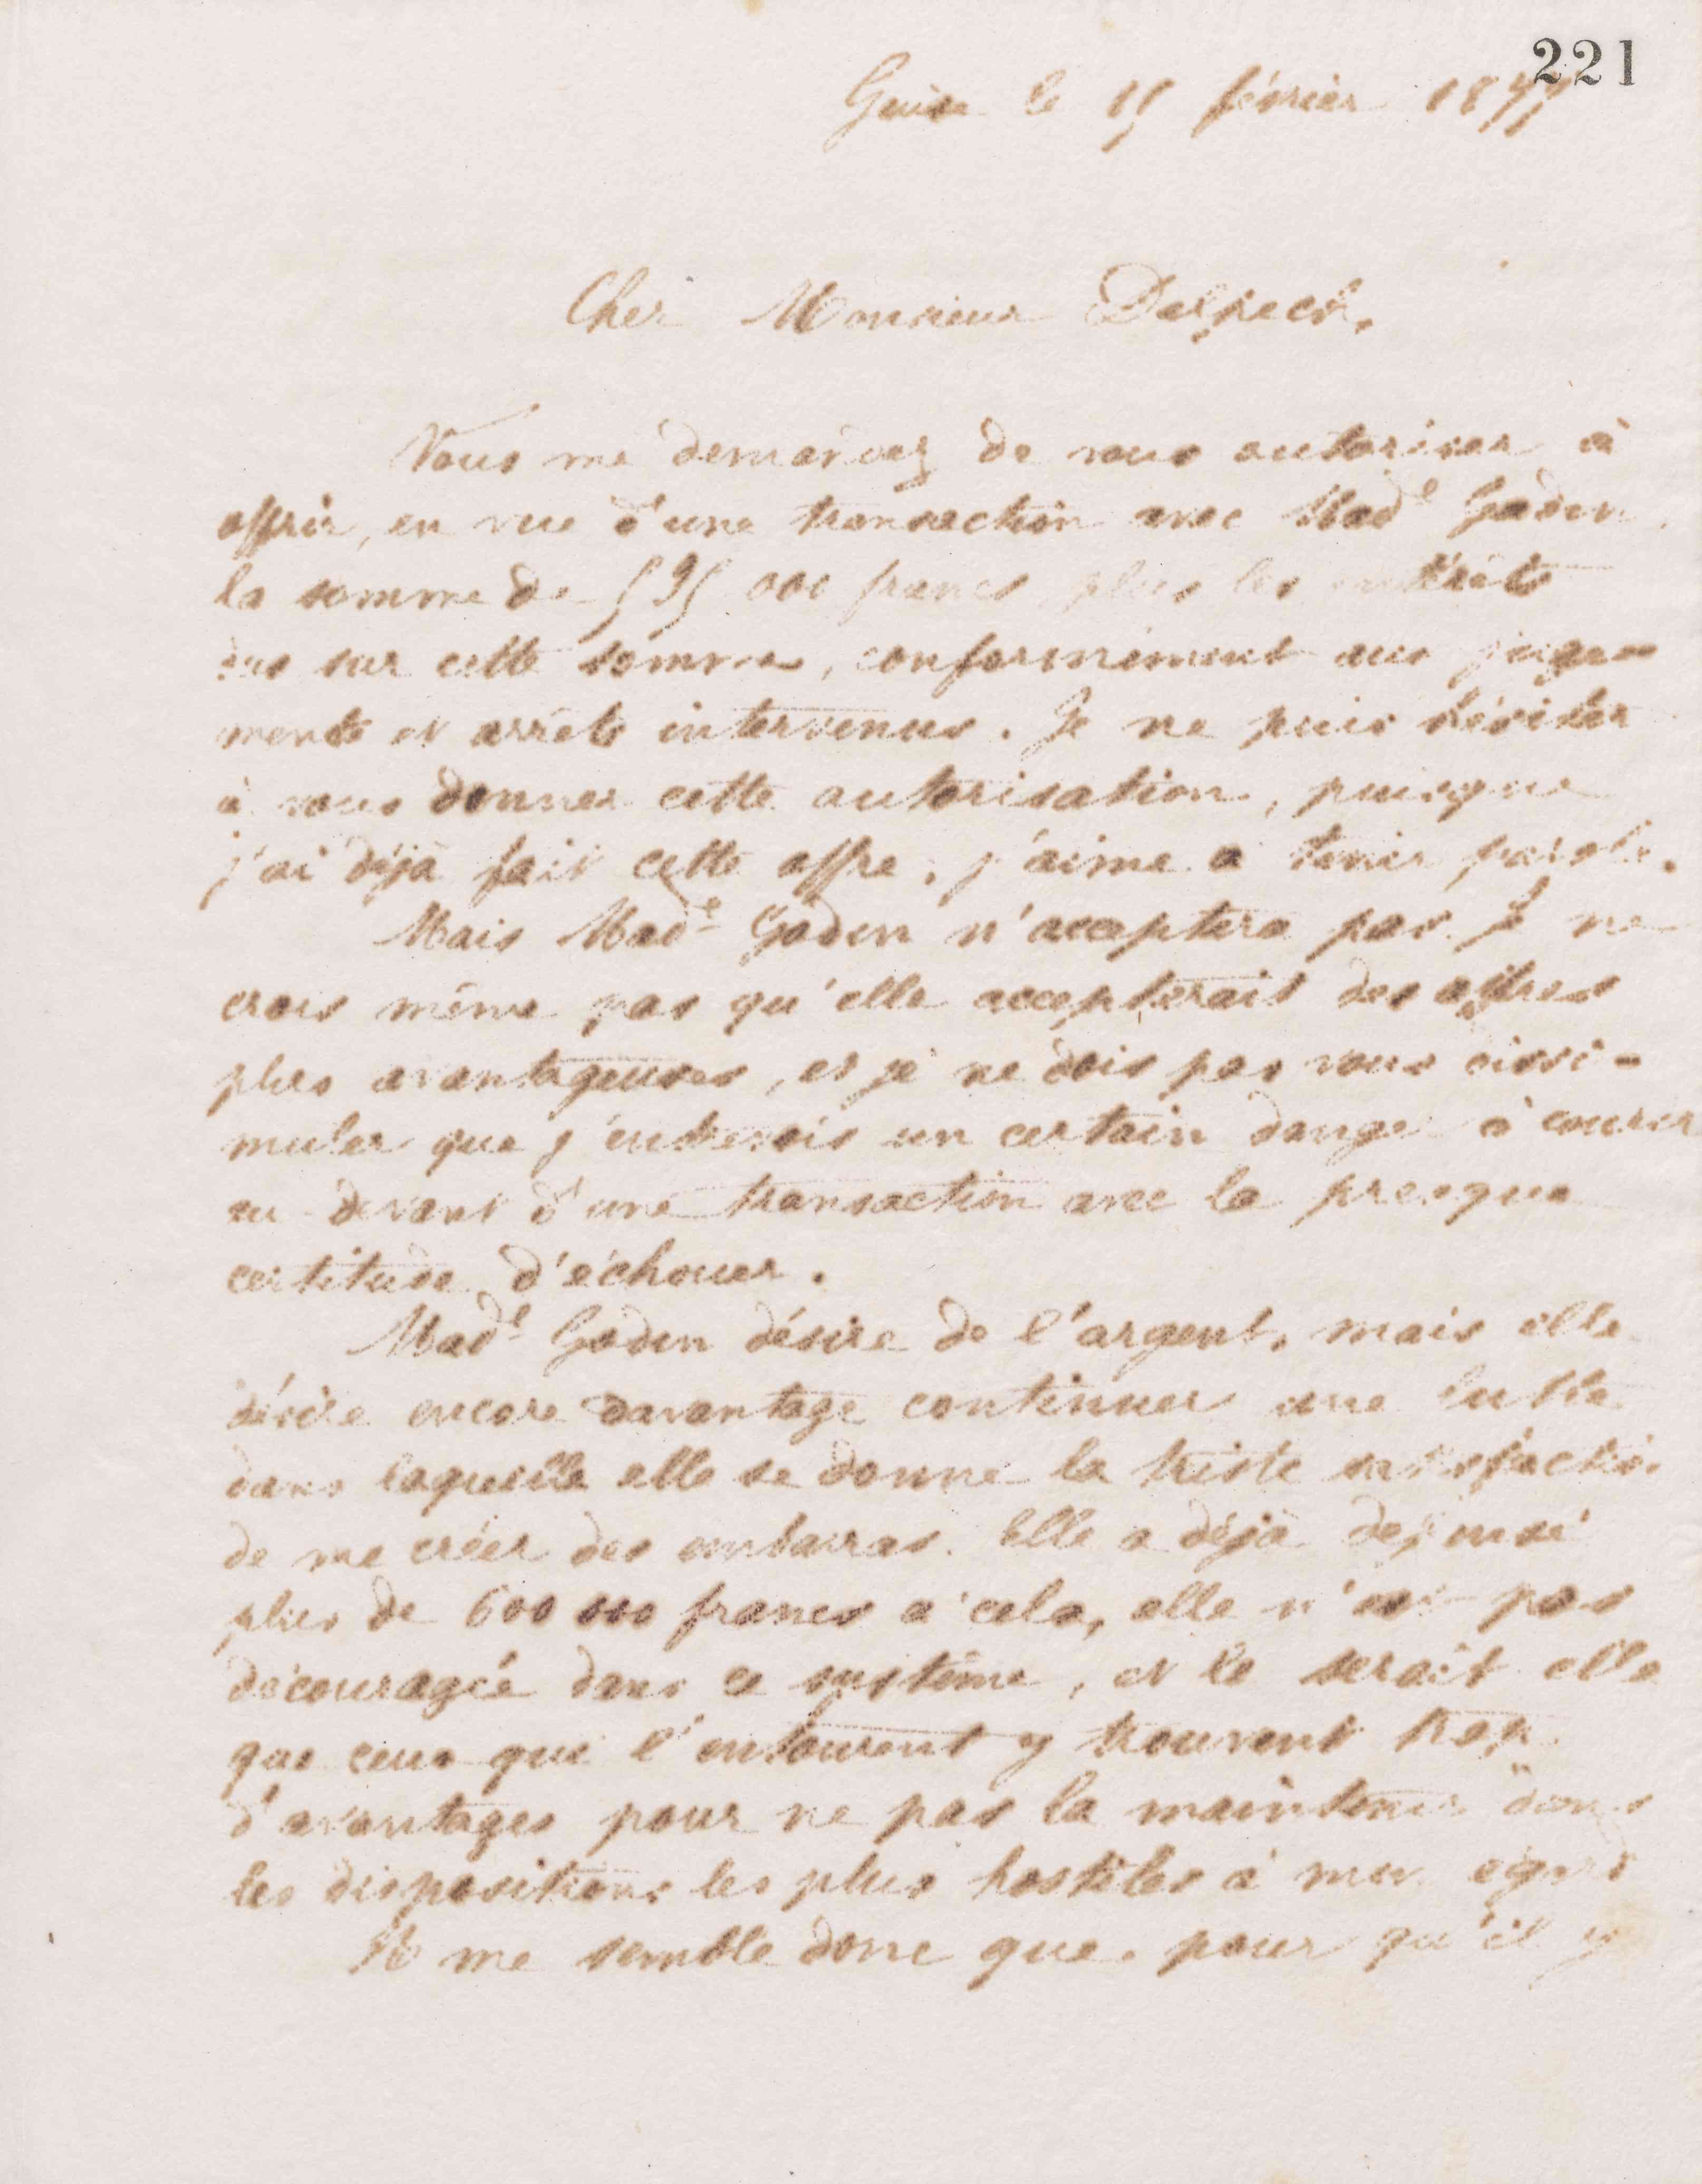 221
Guise le 15 février 1877
Cher Monsieur Delpech,
Vous me demandez de vous autoriser à
offrir, en vue d'une transaction avec Mad^e Godin
la somme de 595 000 francs plus les intérêts
dus sur cette somme, conformément aux juge-
ments et arrêts intervenus. Je ne puis hésiter
à vous donner cette autorisation, puisque
j'ai déjà fait cette offre, j'aime a tenir parole.
Mais Mad^e Godin n'acceptera pas. Je ne
crois même pas qu'elle accepterait des offres
plus avantageuses, et je ne dois pas vous dissi-
muler que j'entrevois un certain danger à courir
au devant d'une transaction avec la presque
certitude d'échouer.
Mad^e Godin désire de l'argent, mais elle
désire encore davantage continuer une lutte
dans laquelle elle se donne la triste satisfaction
de me créer des embarras. Elle a déjà dépensé
plus de 600 000 francs a cela, elle n'est pas
découragée dans ce système, et le serait elle
que ceux qui l'entourent y trouvent trop
d'avantages pour ne pas la maintenir dans
les dispositions les plus hostiles à mon égard
Il me semble donc que, pour qu'il y